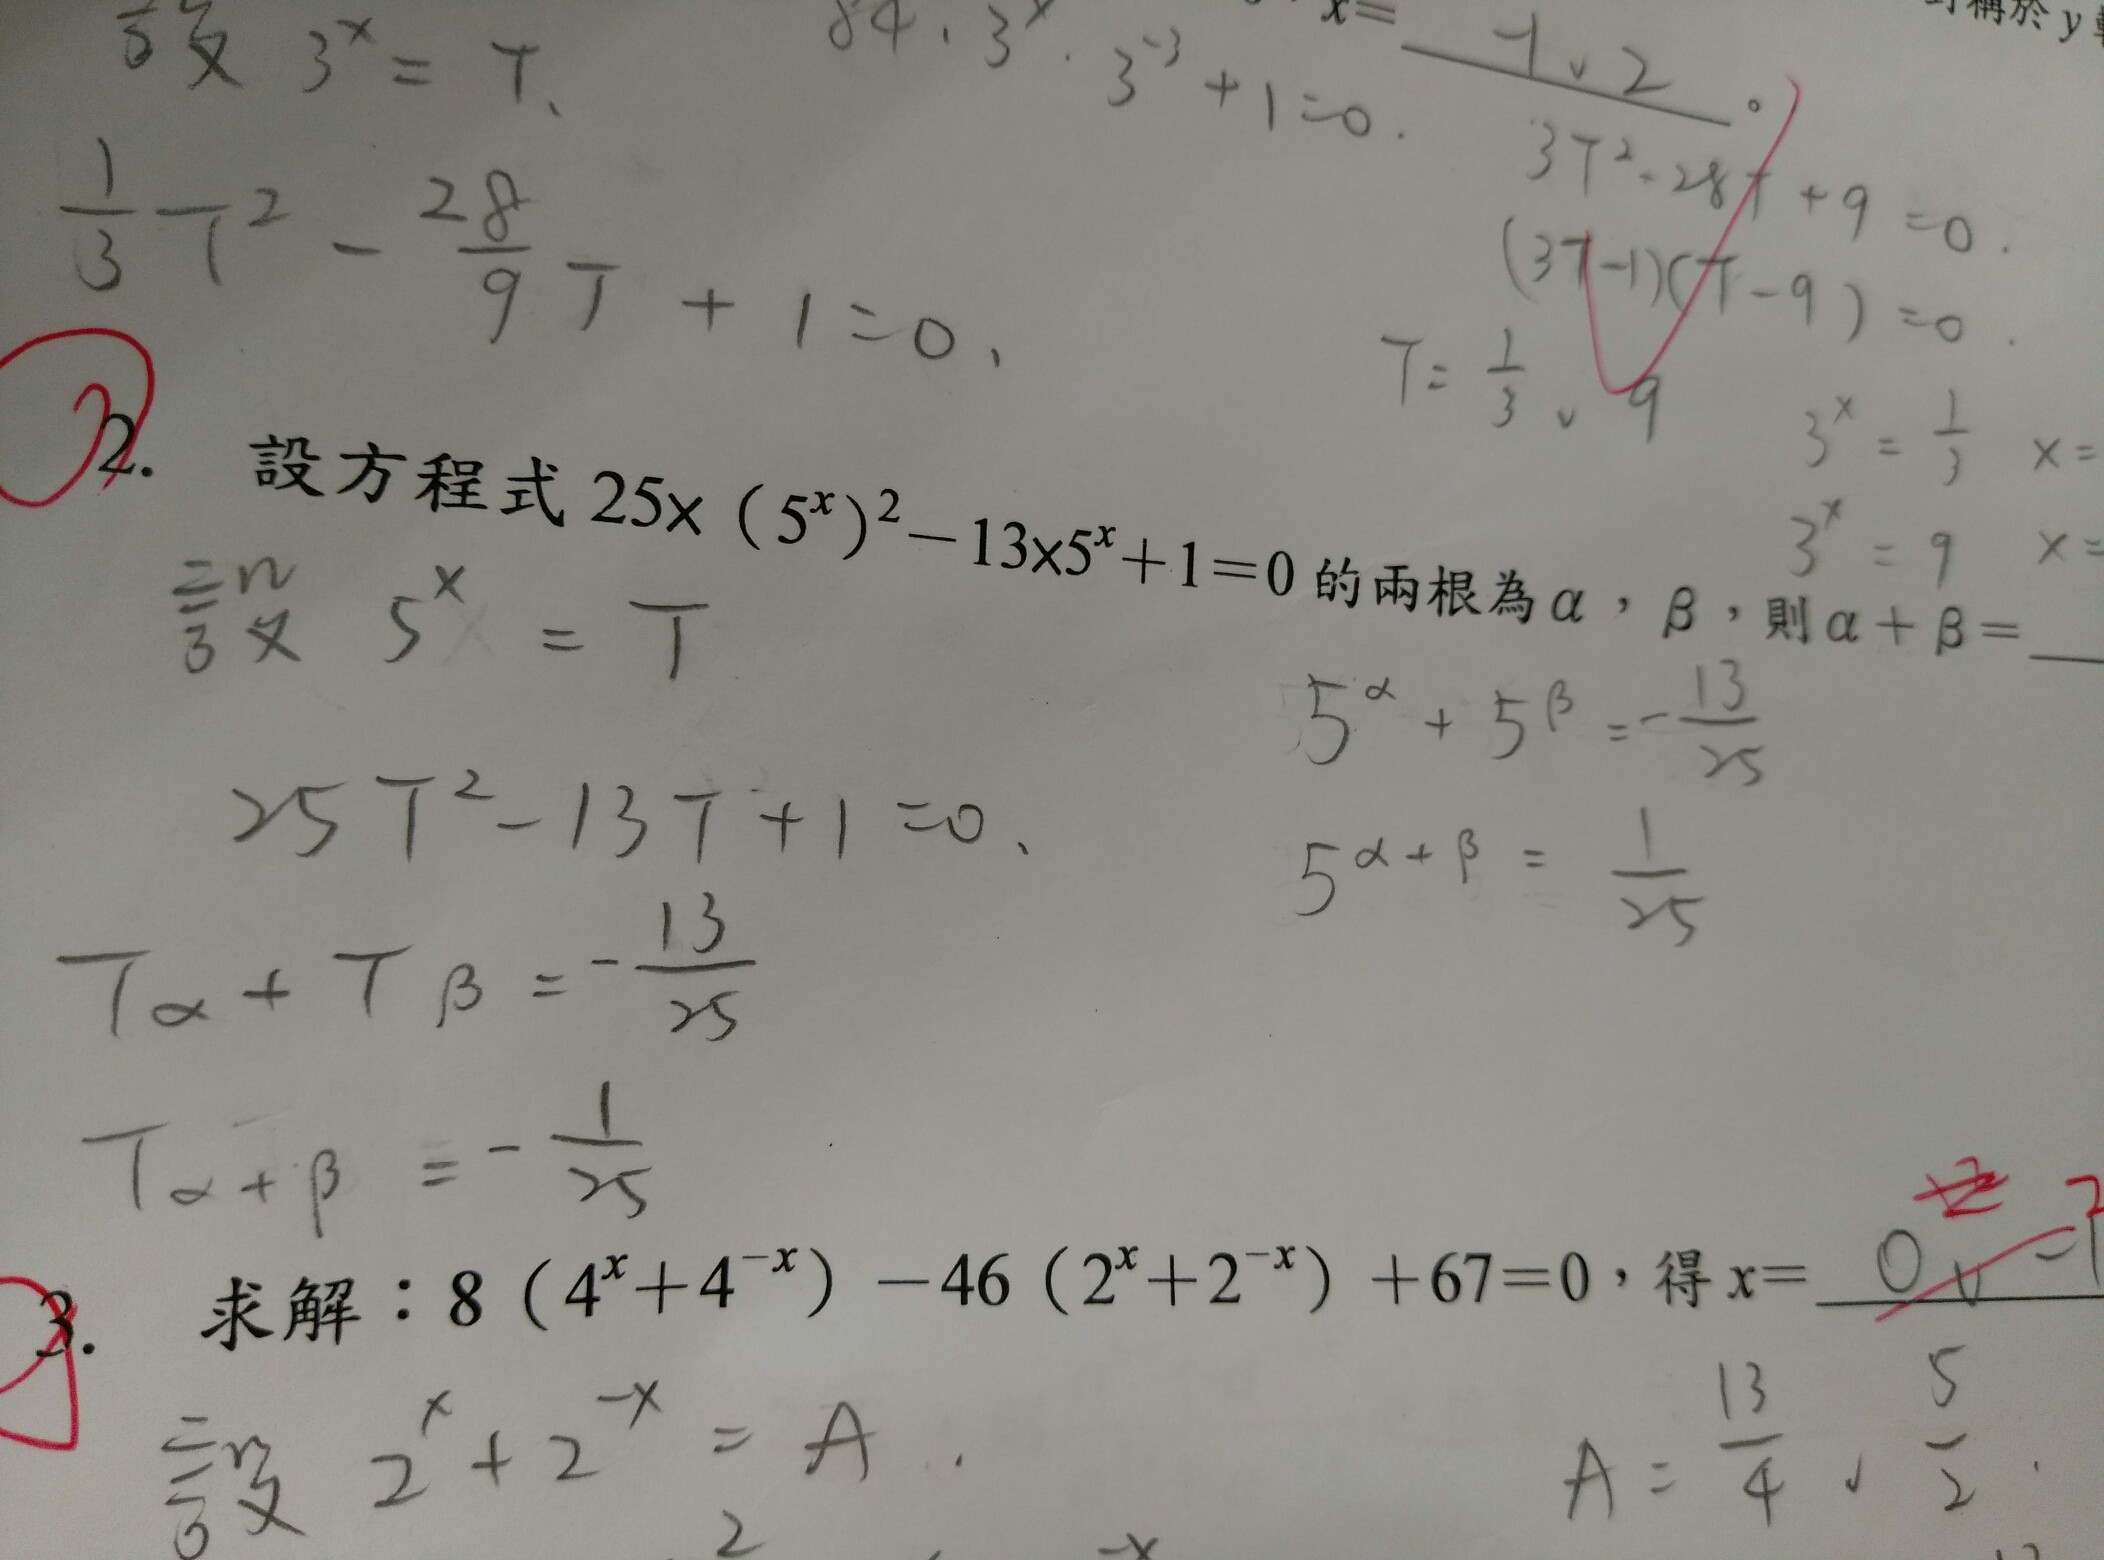 設 3^x = T、
84．3^x．3^-3 + 1=0．
x= -1、2。
稱於 y
1/3 T² - 28/9 T + 1=0、
3T²-28T+9=0．
(3T-1)(T-9)=0．
T= 1/3、9
3^x = 1/3 x=
3^x = 9 x=
2. 設方程式 25×（5^x）²－13×5^x＋1＝0 的兩根為 α，β，則 α＋β＝
設 5^x = T
25T²-13T+1=0、
Tα + Tβ = -13/25
Tα+β = -1/25
5^α + 5^β = -13/25
5^α+β = 1/25
3. 求解：8（4^x＋4^－x）－46（2^x＋2^－x）＋67＝0，得 x＝ 0、-1
±2
設 2^x + 2^-x = A．
A = 13/4、5/2．
2
-x